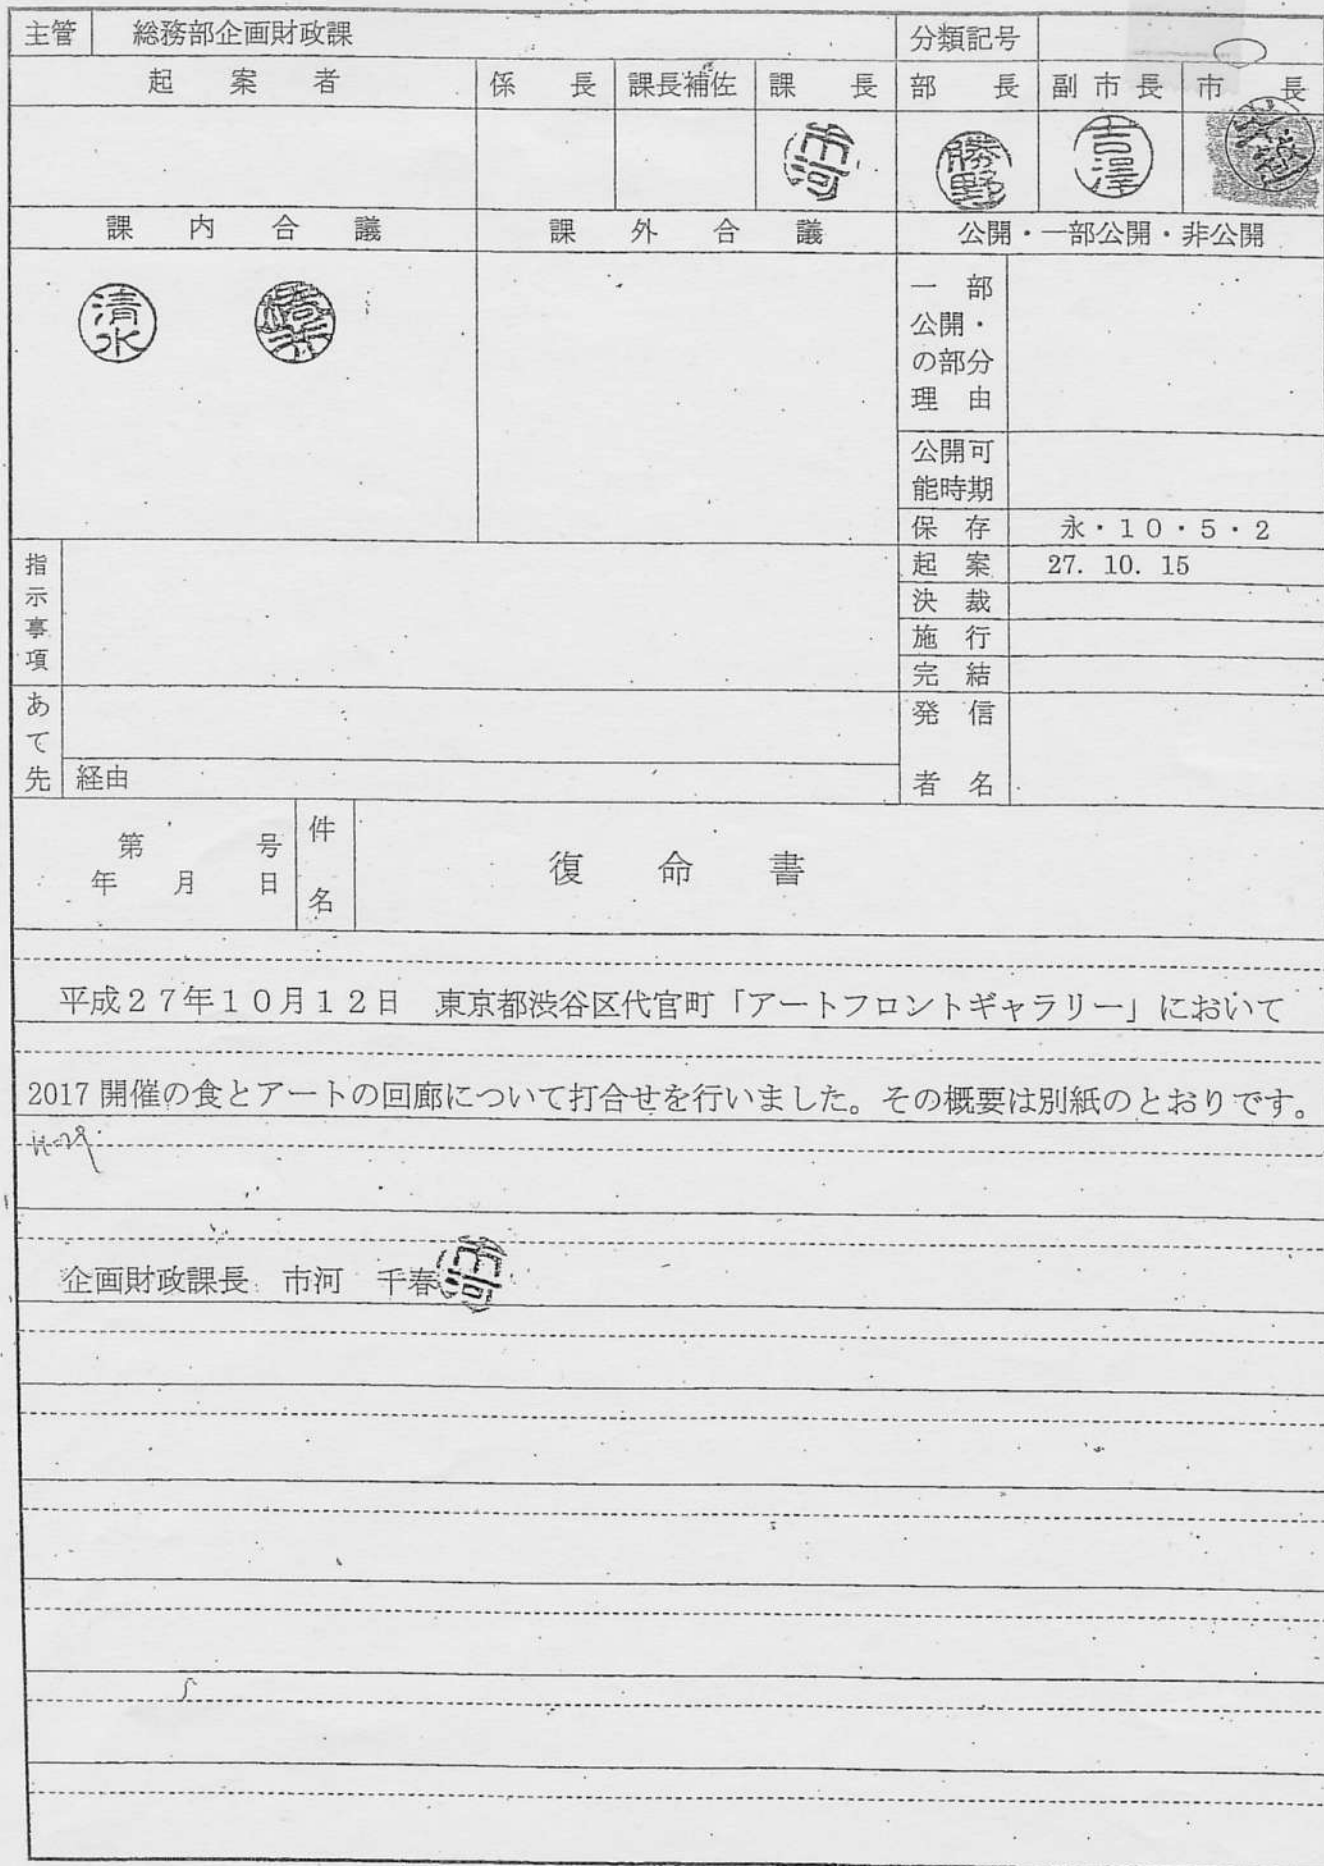 主管 総務部企画財政課 分類記号
起案者 係長 課長補佐 課長 部長 副市長 市長
市河 勝野 吉澤
課内合議 課外合議 公開・一部公開・非公開
清水
一部
公開・
の部分
理由
公開可
能時期
保存 永・10・5・2
指示事項
起案 27. 10. 15
決裁
施行
完結
あて先
発信
経由
者名
第 号
年 月 日
件名
復命書
平成27年10月12日 東京都渋谷区代官町「アートフロントギャラリー」において
2017開催の食とアートの回廊について打合せを行いました。その概要は別紙のとおりです。
企画財政課長 市河 千春 市河